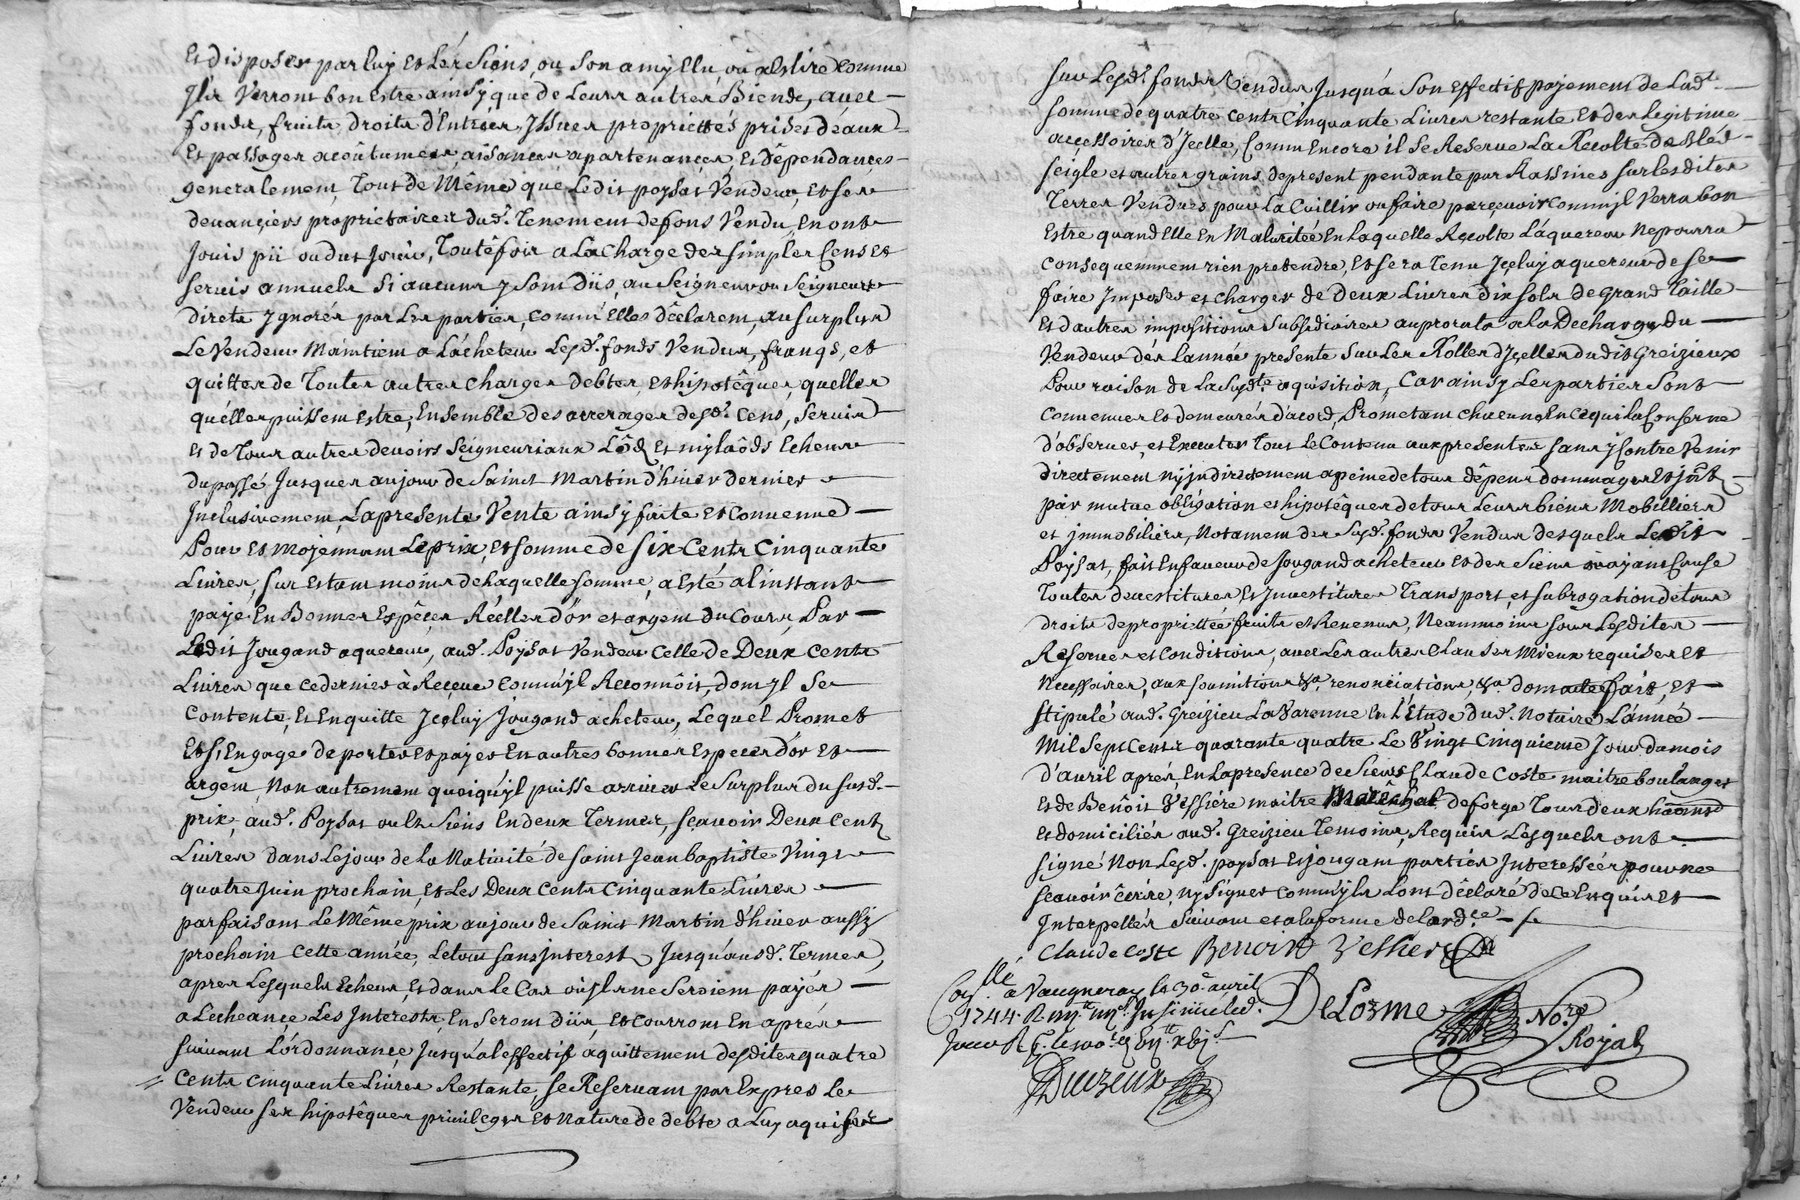 Et disposer par luy et Les Siens, ou Son amy Elu, ou a Eslire comme
Ils Verront bon Estre ainsy que de Leurs autres Biends, avec
fonds, fruits, droits d'Entrées, Issues proprietés prises d'éaux
Et passages acoûtumées, aisances apartenances, Et dépendances
generalement, Tout de Même que Ledit poysat Vendeur, Et ses
devanciers proprietaires dud. Tenement de fons Vendu, En ont
Jouis pü ou dut Jouir, Toutéfois a La charge des simples Cens et
servis annuels Si aucuns y Sont Dûs, au Seigneur ou Seigneurs
directs ygnorés par Les parties, comm' Elles déclarent, au surplus
Le Vendeur Maintient a L'acheteur Lesd. fonds Vendus, francqs, et
quittes de Toutes autres charges debtes, et hipotêques, quelles
qu'elles puissent Estre, Ensemble des arrerages desd. Cens, Servis
Et de Tous autres devoirs Seigneuriaux Lôds Et mylaôds Echeus
du passé Jusques au jour de Saint Martin d'hiver dernier
Inclusivement, La presente Vente ainsy faite et Convenue
Pour Et Moyennant Le prix, et somme de six Cents Cinquante
Livres, sur Et tant moins de Laquelle Somme, a Esté a l'instant
payé En Bonnes Espêces Réelles d'or et argent du Cours, Par
Ledit Jougand aquereur, aud. Poysat Vendeur Celle de Deux Cents
Livres que ce dernier à Reçeue comm'il Reconnôit, dont yl Se
Contente, Et En quitte Jceluy Jougand acheteur, Lequel Promet
Et s'Engage de porter Et payer En autres bonnes Especes d'or Et
argent Non autrement quoiqu'yl puisse arriver Le Surplus du susd.
prix, aud. Poysat ou Es Siens En deux Termes, sçavoir Deux Cents
Livres dans Le jour de La Nativité de Saint Jean baptiste Vingt
quatre Juin prochain, Et Les Deux Cents Cinquante Livres
parfaisant Le Même prix au jour de Saint Martin d'hiver aussy
prochain Cette année, Le tout sans Interest, Jusqu'ausd. Termes,
apres Lesquels Echeus, Et dans Le Cas où ils ne Seroient payés
a L'echeance Les Interests, En Seront Dûs, Et Courront En aprés
suivant L'ordonnance, Jusqu'al'effectif aquittement desdites quatre
Cents Cinquante Livres Restante, Se Reservant par Expres Le
Vendeur ses hipotêques privileges et Nature de debte a Luy aquises
sur Lesd. fonds Vendus Jusqu'á Son Effectif payement de Lad.te
somme de quatre Cents Cinquante Livres restante Et des Legitimes
accessoires d'Jcelle, Comm Encore il Se Reserve La Récolte des bleds
seigle et autres grains depresent pendante par Rassines sur les dites
Terres Vendues, pour La Cuillir ou faire perçevoir comm'yl Verra bon
Estre quand Elle En Maturitée En Laquelle Récolte L'aquereur Ne pourra
Consequemment rien pretendre, Et Sera Tenu Jceluy aquereur de Se
faire Jmposer et charger de Deux Livres dix Sols de grand Taille
Et d'autres impositions Subsidiaires au prorata a la Decharge du
Vendeur dés L'année presente Sur Les Rolles d'Jcelles dudit Greizieux
Pour raison de La Susd.te aquisition, Car ainsy Les parties Sont
Convenues Et demeurés d'acord, Promettant chacune En ce qui la Conserne
d'observer, et Executer Tout Le Contenu aux presentes sans y Contre Venir
directement Ny indirectement a peine de tous dêpens dommages Et jnts
par mutue obligation et hipotêques de tous Leurs biens Mobilliers
et immobiliers, Notament des Susd. fonds Vendus desquels Ledit
Poysat, fait En faveur de Jougand acheteur et des Siens Cause
Toutes devestitures Et Jnvestitures Transport, et subrogation de tous
droits de proprietée fruits et Revenus, Neanmoins Sous Lesdites
Reserves et Conditions, avec Les autres Clauses Mieux requises et
Necessaires, aux soumitions &a. renonciations, &a. dont acte fait, Et
stipulé aud. Greizieu La Varenne En L'Etude dud. Notaire L'année
Mil Sept Cents quarante quatre Le Vingt Cinquieme Jour du mois
d'avril aprés, En La presence de Sieurs Claude Coste maitre boulanger
et de Benôit Vessiére maitre Marêchal de forge Tous deux
Et domiciliés aud. Greizieu Temoins, Requis Lesquels ont
signé Non Lesd. poysat Et jougant parties Interessées pour ne
sçavoir êcrire, ny Signer comm'yls L'ont déclaré de ce Enquis Et
Interpellés Suivant et a la forme de l'ord.ce
Claude coste Benoist Vessiere
a Vaugneray le 30. avril
1744. Insinué led.
DeLorme No.re Royal